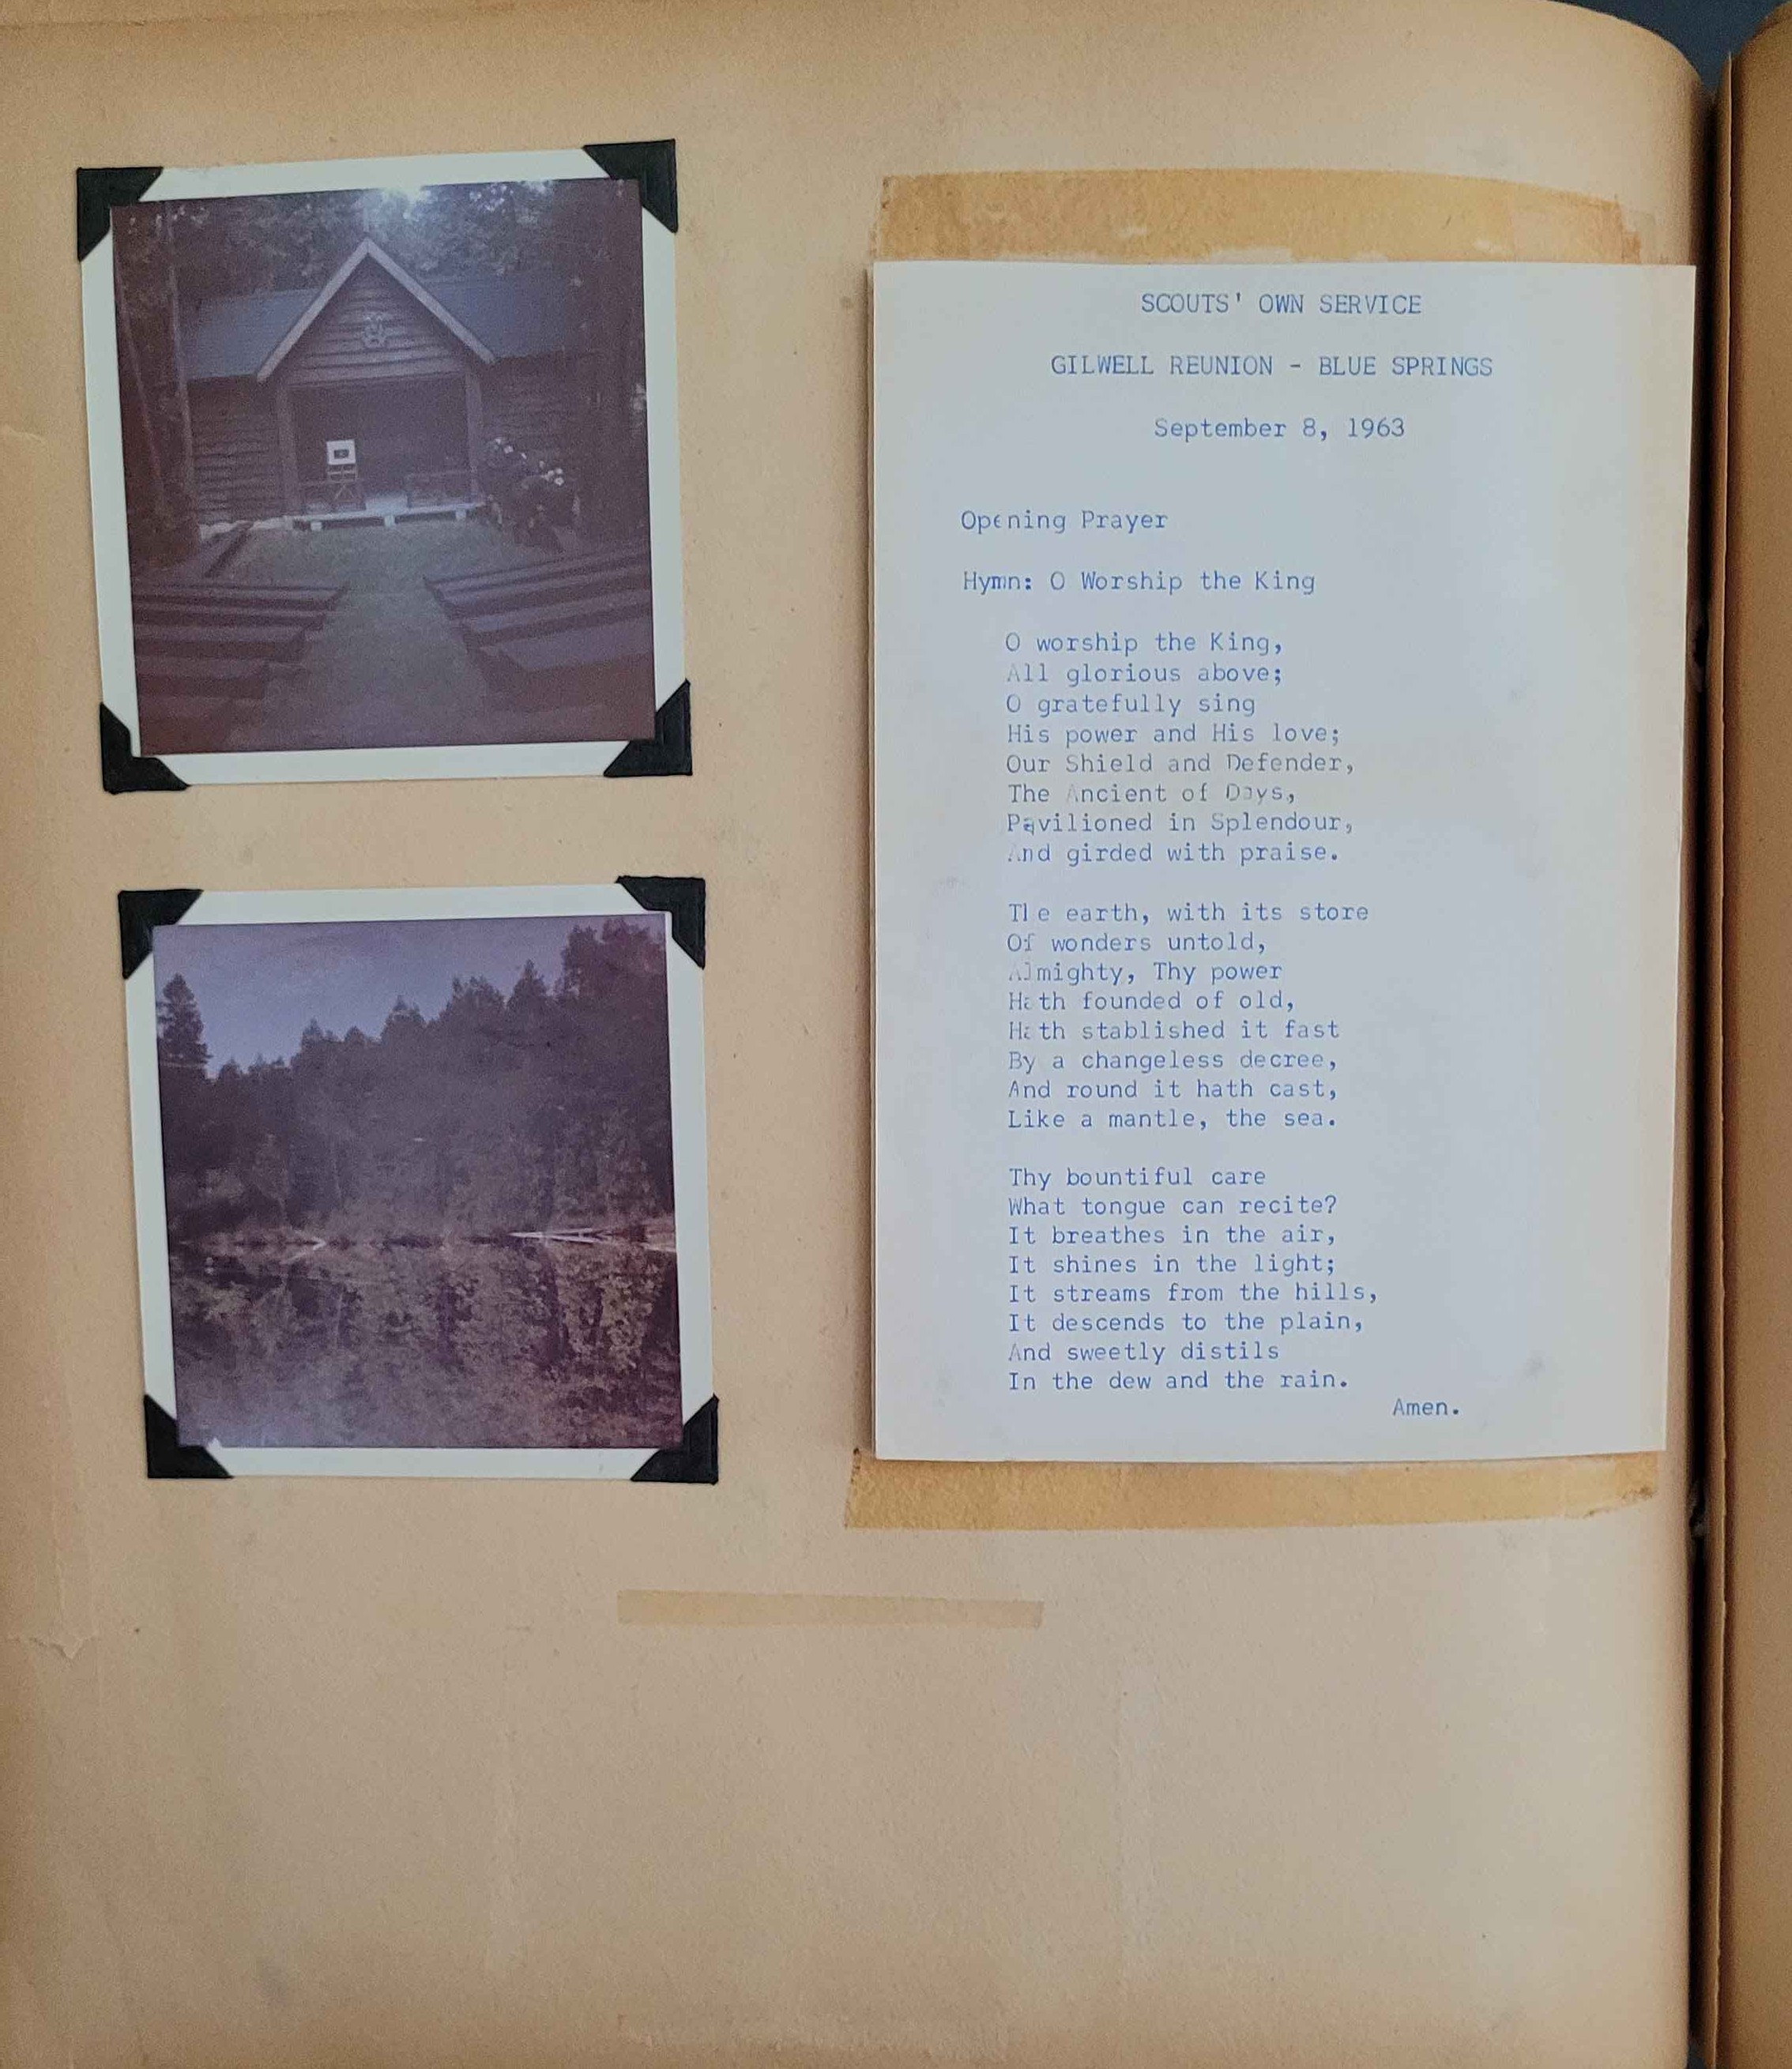 SCOUTS' OWN SERVICE
GILWELL REUNION - BLUE SPRINGS
September 8, 1963
Opening Prayer
Hymn: O Worship the King
O worship the King,
All glorious above;
O gratefully sing
His power and His love;
Our Shield and Defender,
The Ancient of Days,
Pavilioned in Splendour,
And girded with praise.
The earth, with its store
Of wonders untold,
Almighty, Thy power
Hath founded of old,
Hath stablished it fast
By a changeless decree,
And round it hath cast,
Like a mantle, the sea.
Thy bountiful care
What tongue can recite?
It breathes in the air,
It shines in the light;
It streams from the hills,
It descends to the plain,
And sweetly distils
In the dew and the rain.
Amen.